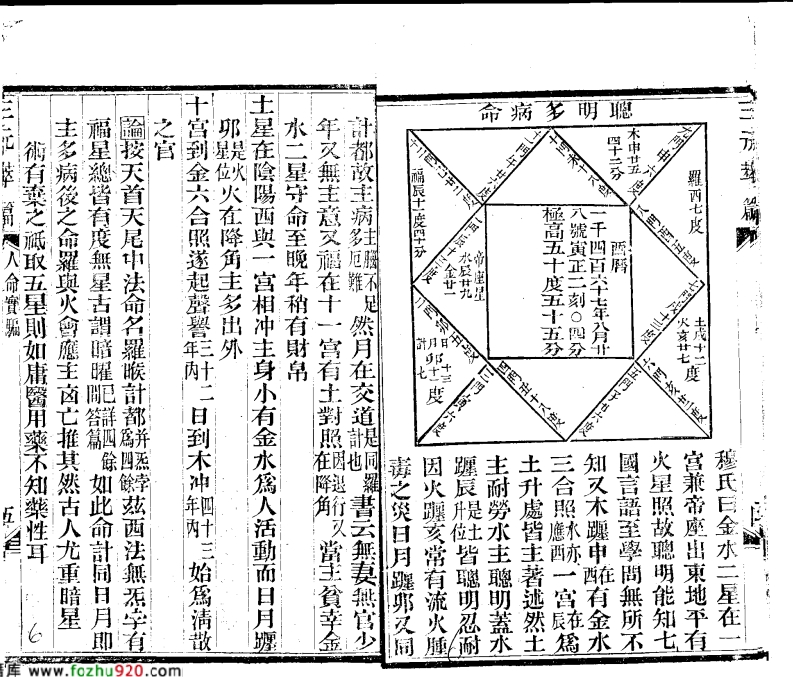 聰明多病命
西曆
一千四百六十七年八月廿
八號寅正二刻〇四分
極高五十度五十五分
木申廿五
四十二分
羅酉七度
土戌十二度
火亥廿七
福辰十度四十分
帝座星
水辰廿九
金廿一
穆氏曰金水二星在一
宮兼帝座出東地平有
火星照故聰明能知七
國言語至學問無所不
知又木躔申在酉有金水
三合照水亦應西一宮在辰為
土升處皆主著述然土
主耐勞水主聰明蓋水
躔辰是土升位皆聰明忍耐
因火躔亥常有流火腫
毒之災日月躔卯又同
計都故主病主腦不足多厄難然月在交道是同羅計也書云無妻無官少
年又無主意又福在十一宮有土對照因退行又在降角當主貧幸金
水二星守命至晚年稍有財帛
土星在陰陽西與一宮相冲主身小有金水為人活動而日月躔
卯是火星位火在降角主多出外
十宮到金六合照遂起聲譽三十二年內日到木冲四十三年內始為清散
之官
論按天首天尾中法命名羅睺計都并炁孛為四餘茲西法無炁孛有
福星總皆有度無星古謂暗曜已詳四餘問答篇如此命計同日月即
主多病後之命羅與火會應主凶亡推其然古人尤重暗星
術有棄之祇取五星則如庸醫用藥不知藥性耳
三元華篇
人命實驅
6
書库 www.fozhu920.com